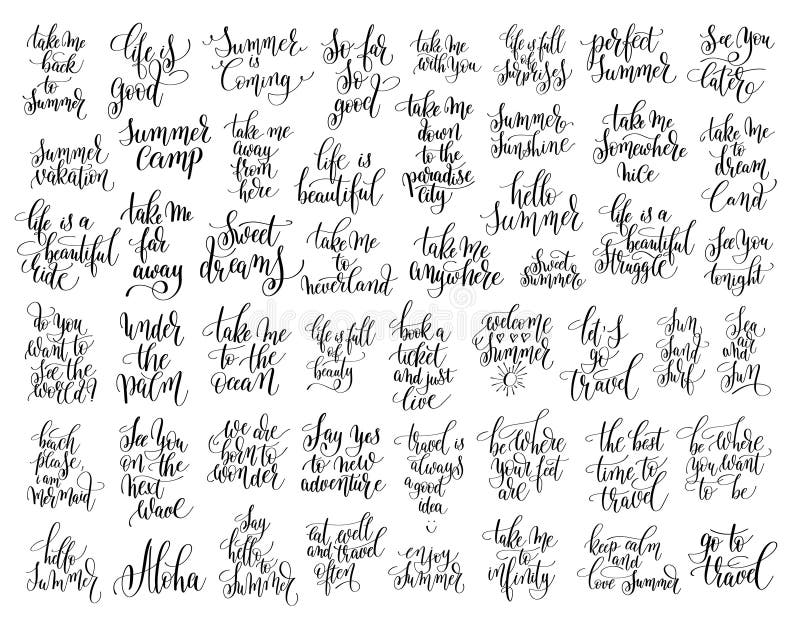 take me
back
to
summer
life is
good
Summer
is
Coming
So far
So
good
take me
with you
life is full
of
surprises
perfect
Summer
See You
later
Summer
vakation
Summer
Camp
take me
away
from
here
life is
beautiful
take me
down
to the
paradise
city
Summer
Sunshine
take me
Somewhere
nice
take me
to
dream
land
life is a
beautiful
ride
take me
far
away
Sweet
dreams
take me
to
neverland
take me
anywhere
hello
Summer
Sweet
Summer
life is a
beautiful
Struggle
See You
tonight
do You
want to
See the
world?
under
the
palm
take me
to the
ocean
life is full
of
beauty
book a
ticket
and just
live
welcome
Summer
let's
go
travel
Sun
Sand
Surf
Sea
air and
Sun
beach
please,
i am
mermaid
See You
on the
next
wave
we are
born to
wonder
Say yes
to new
adventure
travel is
always
a good
idea
be where
Your feet
are
the best
time to
travel
be where
you want
to be
hello
Summer
Aloha
Say
hello
to
Summer
eat well
and travel
often
enjoy
Summer
take me
to
infinity
keep calm
and
love Summer
go to
travel